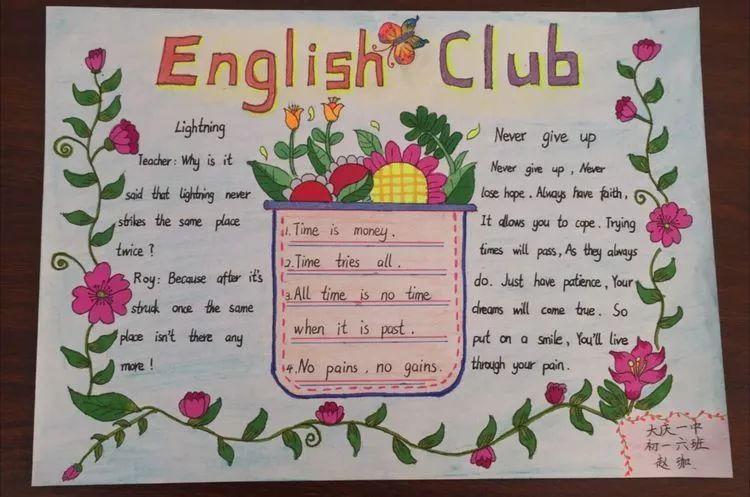 English Club
Lightning
Teacher: Why is it
said that lightning never
strikes the same place
twice?
Roy: Because after it's
struck once the same
place isn't there any
more!
1. Time is money.
2. Time tries all.
3. All time is no time
when it is past.
4. No pains, no gains.
Never give up
Never give up, Never
lose hope. Always have faith,
It allows you to cope. Trying
times will pass, As they always
do. Just have patience, Your
dreams will come true. So
put on a smile, You'll live
through your pain.
大庆一中
初一六班
赵珈